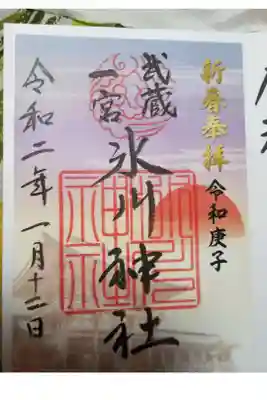 新春奉拝
令和庚子
武蔵
一宮
氷川神社
令和二年一月十二日